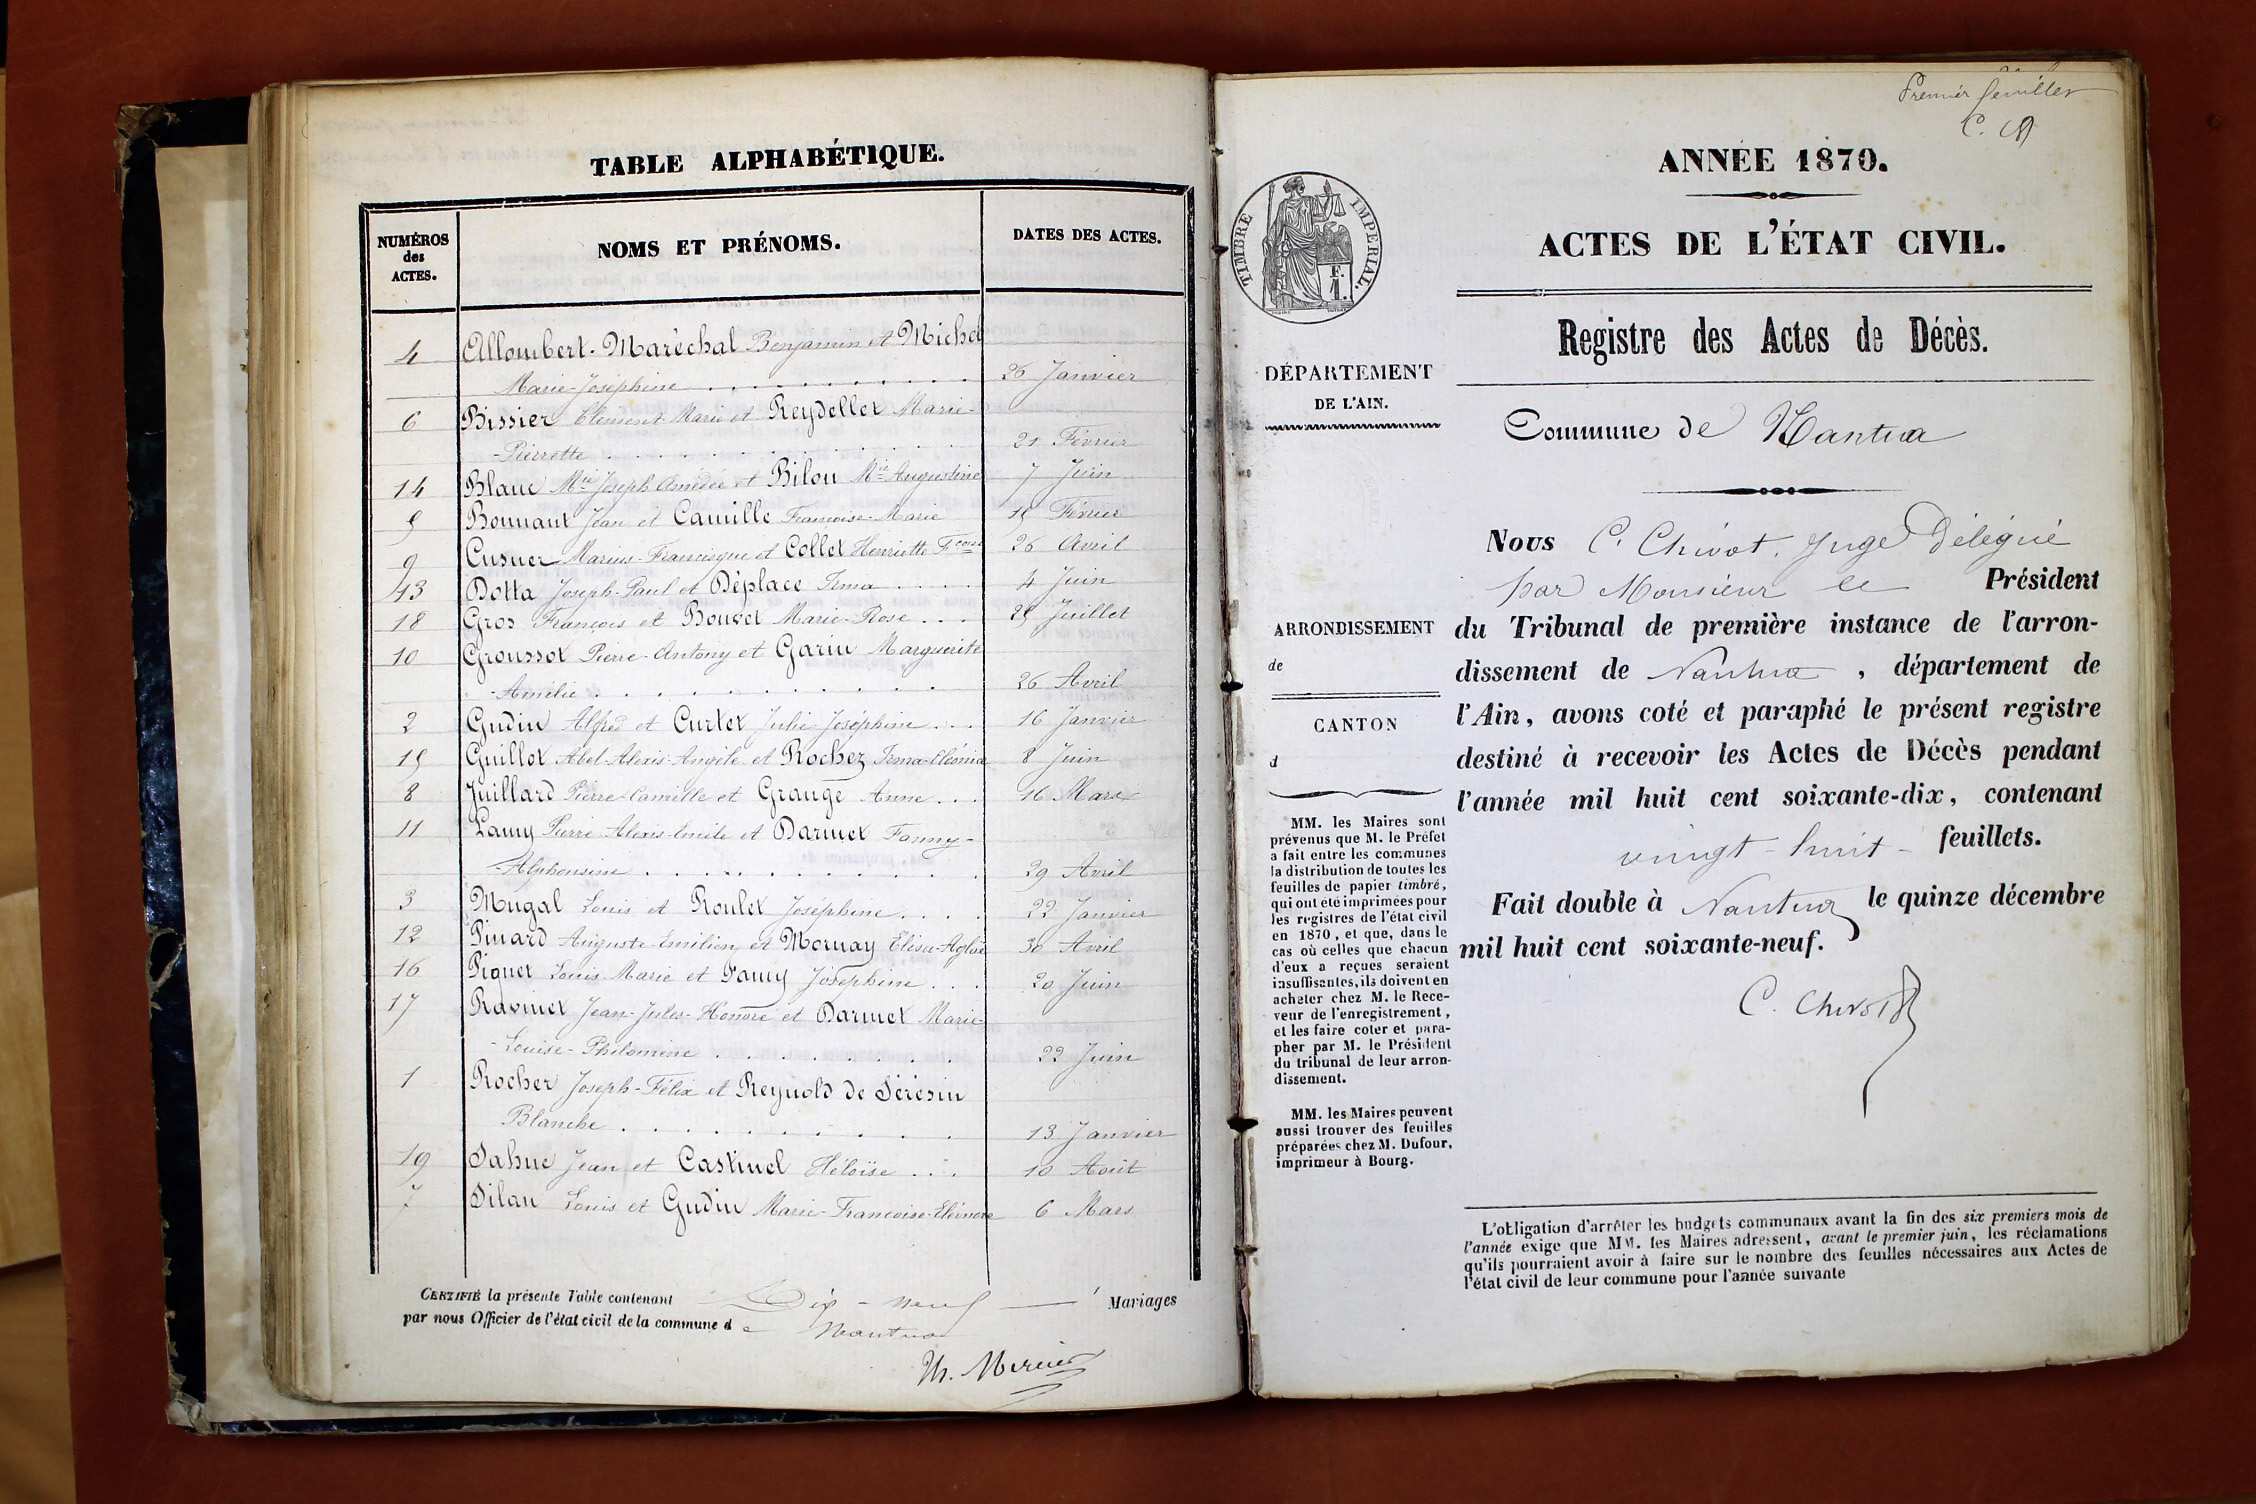 TABLE ALPHABÉTIQUE.
NUMÉROS des ACTES.
NOMS ET PRÉNOMS.
DATES DES ACTES.
4 Allombert-Maréchal Benjamin et Michel
Marie-Joséphine 26 Janvier
6 Bissier Clément Marie et Reydellet Marie-
-Pierrette 21 Février
14 Blanc Mie Joseph Amédée et Bilon Mie Augustine 7 Juin
5 Bonnant Jean et Camille Françoise-Marie 15 Février
9 Cusner Marius-Francisque et Collet Henriette Fcoise 26 Avril
13 Dotta Joseph-Paul et Déplace Irma 4 Juin
18 Gros François et Bouvet Marie-Rose 25 Juillet
10 Groussot Pierre-Antony et Garin Marguerite
-Amélie 26 Avril
2 Gudin Alfred et Curtet Julie-Joséphine 16 Janvier
15 Guillot Abel-Alexis-Angèle et Rochez Irma-Cléonice 8 Juin
8 Juillard Pierre-Camille et Grange Anne 16 Mars
11 Lamy Pierre-Alexis-Emile et Darmet Fanny-
-Alphonsine 29 Avril
3 Mugal Louis et Roulet Joséphine 22 Janvier
12 Pinard Auguste-Emilien et Mornay Elisa-Aglaé 30 Avril
16 Piquet Louis-Marie et Famy Joséphine 20 Juin
17 Ravinet Jean-Jules-Honoré et Darmet Marie-
-Louise-Philomène 22 Juin
1 Rocher Joseph-Félix et Reynold de Sérésin
Blanche 13 Janvier
19 Sahuc Jean et Castinel Héloïse 10 Août
7 Silan Louis et Gudin Marie-Françoise-Eléonore 6 Mars
CERTIFIÉ la présente Table contenant Dix-neuf Mariages
par nous Officier de l'état civil de la commune de Nantua
Th. Mercier
Premier feuillet
C. Ch
ANNÉE 1870.
ACTES DE L'ÉTAT CIVIL.
TIMBRE IMPÉRIAL.
F. 1.
Registre des Actes de Décès.
DÉPARTEMENT
DE L'AIN.
Commune de Nantua
Nous C. Chivot, Juge Délégué
par Monsieur le Président
du Tribunal de première instance de l'arron-
dissement de Nantua, département de
l'Ain, avons coté et paraphé le présent registre
destiné à recevoir les Actes de Décès pendant
l'année mil huit cent soixante-dix, contenant
vingt-huit- feuillets.
Fait double à Nantua le quinze décembre
mil huit cent soixante-neuf.
C. Chivot
ARRONDISSEMENT
de
CANTON
d
MM. les Maires sont
prévenus que M. le Préfet
a fait entre les communes
la distribution de toutes les
feuilles de papier timbré,
qui ont été imprimées pour
les registres de l'état civil
en 1870, et que, dans le
cas où celles que chacun
d'eux a reçues seraient
insuffisantes, ils doivent en
acheter chez M. le Rece-
veur de l'enregistrement,
et les faire coter et para-
pher par M. le Président
du tribunal de leur arron-
dissement.
MM. les Maires peuvent
aussi trouver des feuilles
préparées chez M. Dufour,
imprimeur à Bourg.
L'obligation d'arrêter les budgets communaux avant la fin des six premiers mois de
l'année exige que MM. les Maires adressent, avant le premier juin, les réclamations
qu'ils pourraient avoir à faire sur le nombre des feuilles nécessaires aux Actes de
l'état civil de leur commune pour l'année suivante